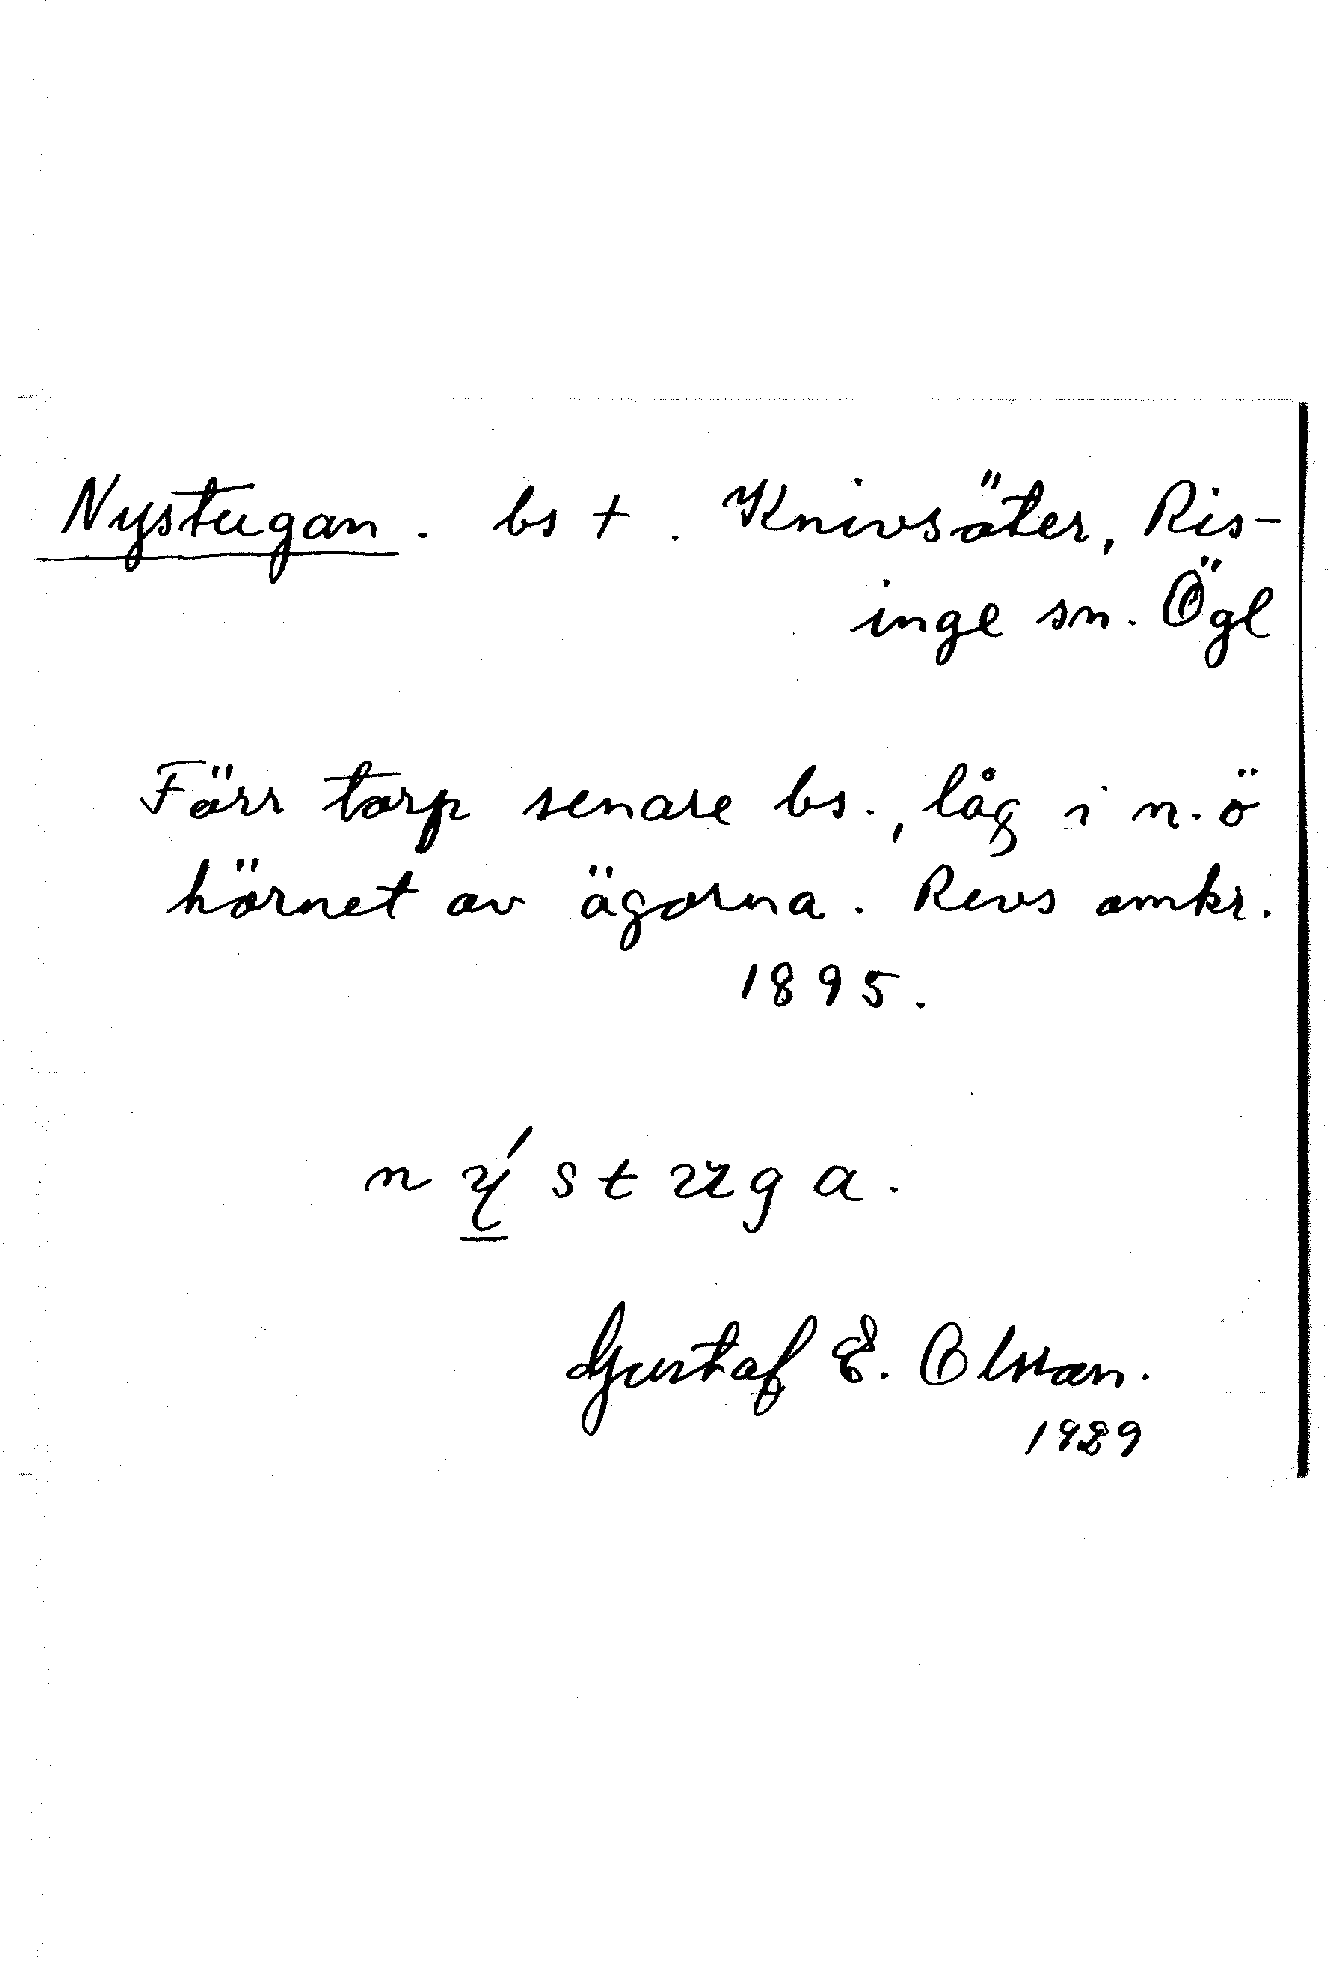 Nystugan. bs +. Knivsäter, Ris-
inge sn. Ögl
Förr torp senare bs., låg i n.ö
hörnet av ägorna. Revs omkr.
1895.
nýstuga.
Gustaf E. Olsson.
1989